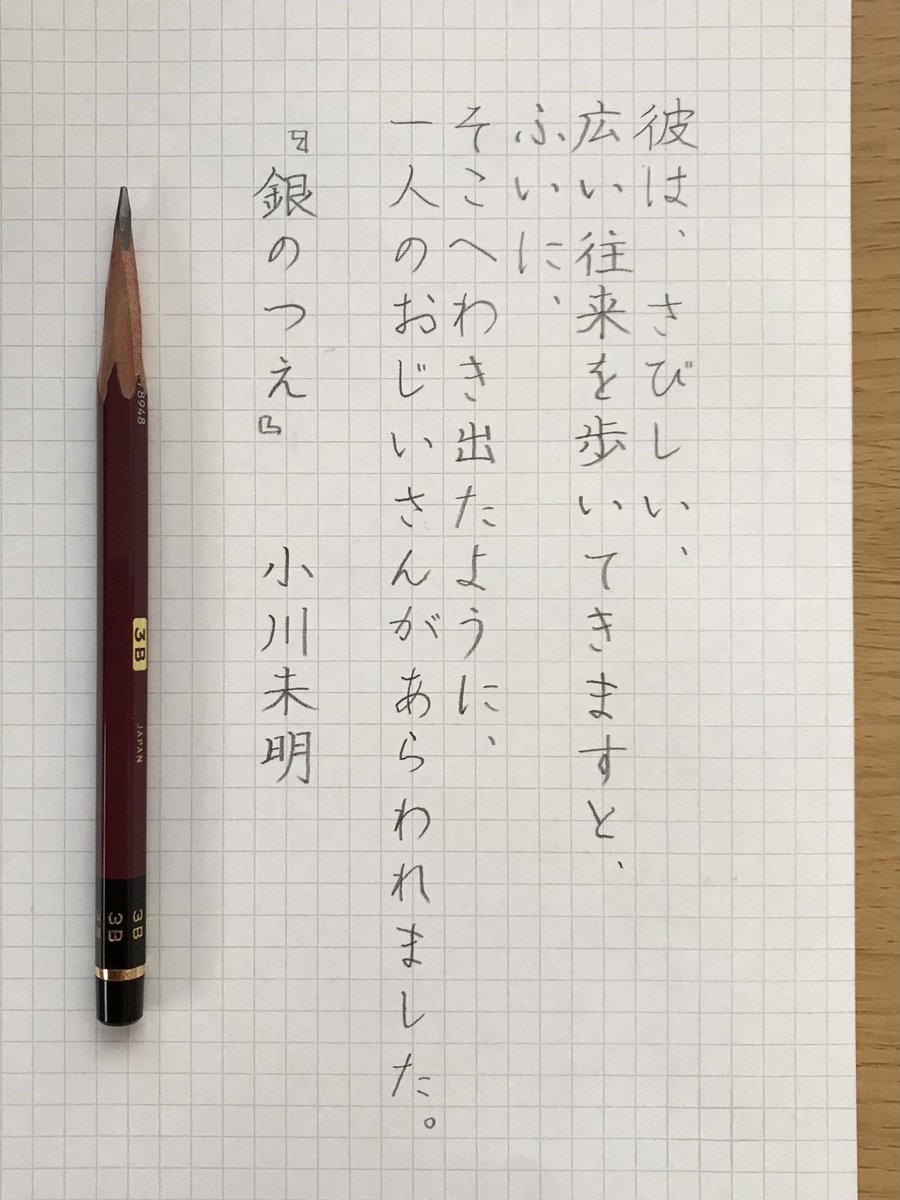 彼は、さびしい、
広い往来を歩いてきますと、
ふいに、
そこへわき出たように、
一人のおじいさんがあらわれました。
『銀のつえ』　小川未明
8948
3B
JAPAN
3B
3B